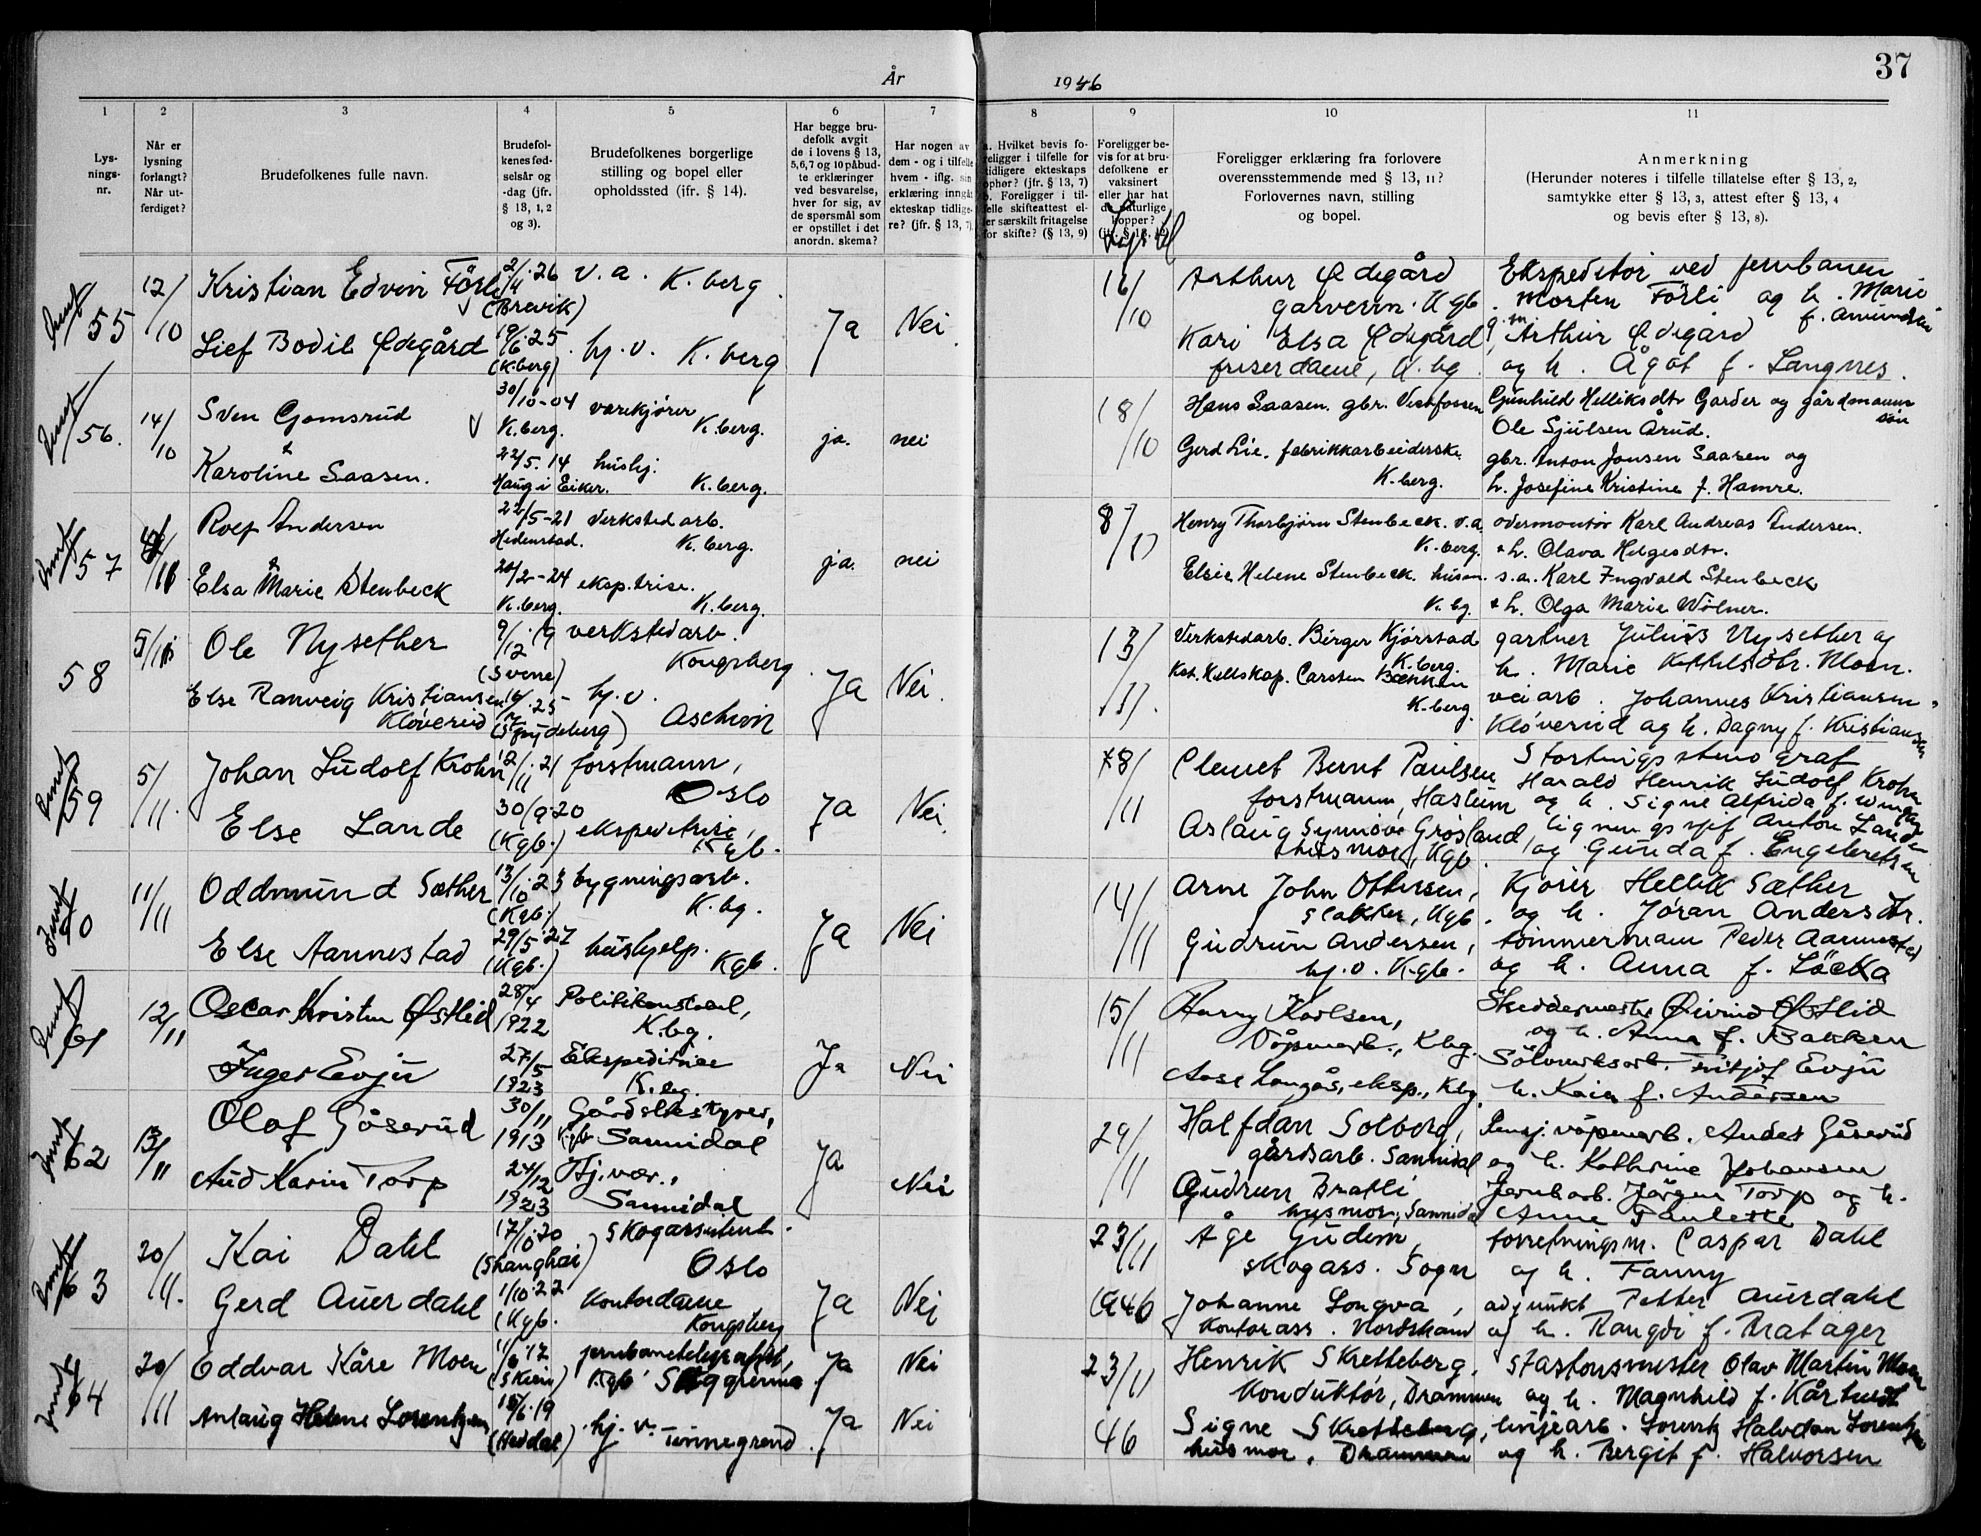 År
1946
37
1
2
3
4
5
6
7
8
9
10
11
Lys-
nings-
nr.
Når er
lysning
forlangt?
Når ut-
ferdiget?
Brudefolkenes fulle navn.
Brudefol-
kenes fød-
selsår og
-dag (jfr.
§ 13, 1, 2
og 3).
Brudefolkenes borgerlige
stilling og bopel eller
opholdssted (ifr. § 14).
Har begge bru-
defolk avgit
de i lovens § 13,
5,6,7 og 10 påbud-
te erklæringer
ved besvarelse,
hver for sig, av
de spørsmål som
er opstillet i det
anordn. skema?
Har nogen av
dem - og i tilfelle
hvem - iflg. sin
erklæring inngå
ekteskap tidlige-
re? (jfr. § 13, 7)
a. Hvilket bevis fo-
religger i tilfelle for
tidligere ekteskaps
ophør? (jfr. § 13, 7)
b. Foreligger i til-
felle skifteattest el-
ler særskilt fritagelse
for skifte? (§ 13, 9)
Foreligger be-
vis for at bru-
defolkene er
vaksinert
eller har hat
de naturlige
kopper?
Foreligger erklæring fra forlovere
overensstemmende med § 13, 11?
Forlovernes navn, stilling
og bopel.
Anmerkning
(Herunder noteres i tilfelle tillatelse efter § 13, 2,
samtykke efter § 13, 3, attest efter § 13, 4
og bevis efter § 13, 8).
55
12/10
Kristian Edvin Förli
2/4.26
(Brevik)
v.a. K.berg
Lief Bodil Ødegård
19/6.25
(K.berg)
hj.v. K.berg
Ja
Nei
16/10
Arthur Ødegård
garverm. Kgb.
Kari Elsa Ødegård
friserdame, K.bg.
Ekspeditør ved jernbanen
Morten Förli og h. Marie
f. Amundsen
Arthur Ødegård
og h. Ågot f. Langnes.
56.
14/10
Sven Gomsrud
30/10-04
K.berg.
varekjører
K.berg.
Karoline Saasen.
22/5.14
Haug i Eiker.
hushj.
K.berg.
ja.
nei
18/10
Hans Saasen. gbr. Vestfossen
Gerd Lie. fabrikkarbeiderske.
K.berg.
Gunhild Helliksdtr Garder og gårdmann
Ole Sjulsen Årud.
gbr. Anton Jonsen Saasen og
h. Josefine Kristine f. Hamre.
57
Rolf Andersen
22/5-21
Hedenstad.
Verksted arb.
K.berg.
Elsa Marie Stenbeck
20/2-24
K.berg.
eksp.trise.
K.berg.
ja.
nei
8/11
Henry Thorbjørn Stenbeck. v.a.
K.berg.
Elsie Helene Stenbeck. husm.
K.bg.
overmontør Karl Andreas Andersen.
+ h. Olava Helgesdtr.
s.a. Karl Ingvald Stenbeck
+ h. Olga Marie Wölner.
58
5/11
Ole Nysether
9/12.19
(Svene)
verkstedarb.
Kongsberg
Else Ranveig Kristiansen
Kløverud
(Spydeberg)
hj.v.
Askim
Ja
Nei.
13/11.
Verkstedarb. Birger Kjørstad
K.berg.
Carsten Bakken
K.berg.
gartner Julius Nysether og
h. Marie Kittilsdtr. Moen.
veiarb. Johannes Kristiansen
Kløverud og h. Dagny f. Kristiansen
59
5/11.
Johan Ludolf Krohn
12/11.21
forstmann,
Oslo
Else Lande
30/9.20
(Kgb.)
ekspeditrise,
Kgb.
Ja
Nei.
8/11
Clemet Bernt Paulsen
forstmann, Haslum
Aslaug Synnöve Grösland
husmor, Kgb.
Stortingsstenograf
Harald Henrik Ludolf Krohn
og h. Signe Alfrida f.
ligningssjef Anton Lande
og Gunda f. Engebretsen
60
11/11
Oddmund Sæther
13/10.23
(Kgb.)
bygningsarb.
K.bg.
Else Aannestad
29/5.27
(Kgb.)
hushjelp.
Kgb.
Ja
Nei
14/11
Arne John Ottersen,
slakter, Kgb.
Gudrun Andersen,
hj.v. Kgb.
Kjører Hellik Sæther
og h. Jøran Andersdtr.
tömmermann Peder Aannestad
og h. Anna f. Löcka
61
12/11
Oscar Kristen Østlid
28/4
1922
Politikonstabel,
K.bg.
Inger Evju
27/5
1923
Ekspeditrise
K.bg.
Ja
Nei
15/11
Harry Karlsen,
Våpenarb., Kbg.
Aase Langås, eksp., Kbg.
Skreddermester Øivind Østlid
og h. Anna f. Bakken
Sölvverksarb. Fritjof Evju
h. Kaia f. Andersen
62
13/11
Olaf Gåserud
30/11
1913
Kgb
Gårdsbestyrer,
Sannidal
Aud Karin Torp
24/12
1923
Hj.vær.,
Sannidal
Ja
Nei
29/11
Halfdan Solberg,
gårdsarb. Sannidal
Gudrun Bratli
husmor, Sannidal
Pensj. våpenarb. Anders Gåserud
og h. Kathrine Johansen
Jernb.arb. Jörgen Torp og h.
Anne Paulette
63
20/11.
Kai Dahl
(Shanghai)
skogassistent.
Oslo
Gerd Auerdahl
1/10.22
(Kgb.
Kontordame
Kongsberg
Ja
Nei
23/11
1946
Åge Gudem,
skogass. Sogn
Johanne Longva,
Kontorass. Nordstrand
forretningsm. Caspar Dahl
og h. Fanny
adjunkt Petter Auerdahl
og h. Rangdi f. Bratager
64
20/11
Eddvar Kåre Moen
11/6.17
(Skien)
jernbanetelegrafist,
Kgb
Anlaug Helene Lorentzen
18/6.19
(Heddal)
hj.v. Tinnegrend.
Ja
Nei
Ja
Nei
23/11
46
Henrik Skretteberg.
Konduktør, Drammen
Signe Skretteberg,
husmor, Drammen
Stasjonsmester Olav Martin Moen
og h. Magnhild f. Kårtvedt
linjearb. Lorentz Halvdan Lorentzen
og h. Bergit f. Halvorsen